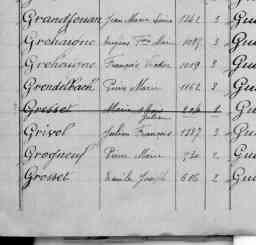 Grandjouan Jean Marie 1242 3 Gu
Grehaigne 1087 3 Gu
Grehaigne François Victor 1019 3 Gu
Grendelbach Pierre Marie 1162 3 Gu
Gresset Julien 2 Gu
Grivol Julien François 1287 3 Gu
Grogneuf Pierre Marie 730 2 Gu
Grosset Emile Joseph 616 2 Gu